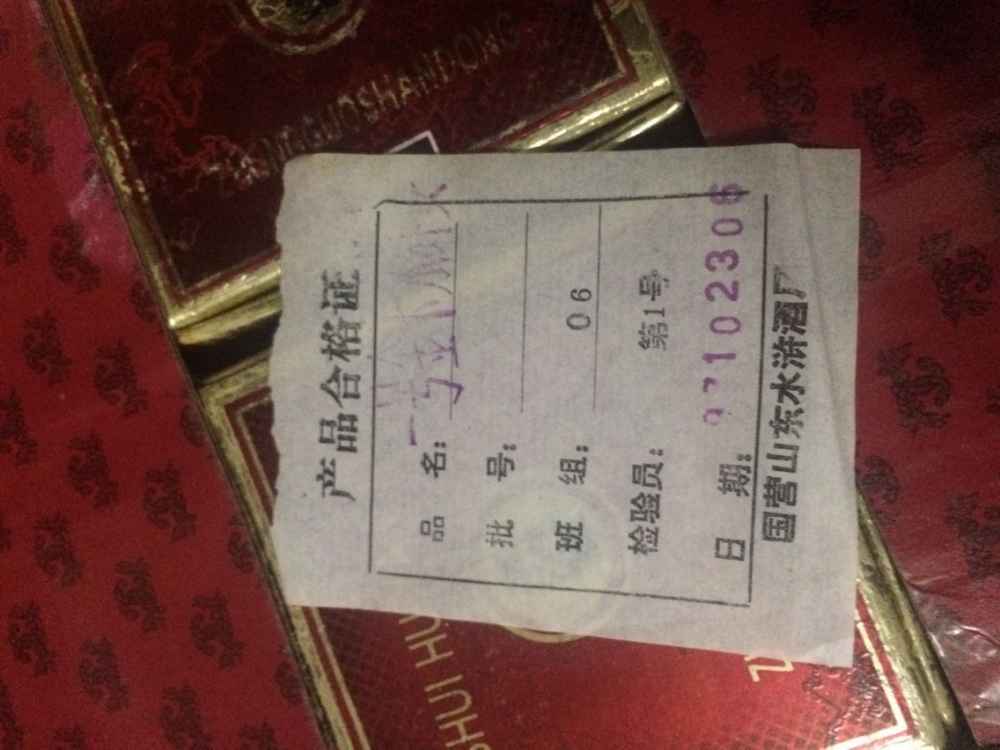 产品合格证
品 名:
批 号:
班 组: 06
检验员: 第1号
日 期: 97102306
国营山东水浒酒厂
GUOSHANDONG
SHUI HU